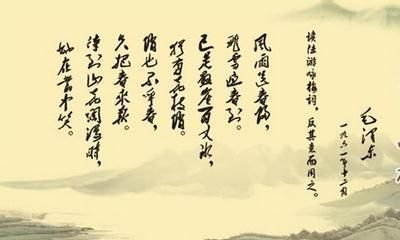 風雨送春歸，
飛雪迎春到。
已是懸崖百丈冰，
猶有花枝俏。
俏也不爭春，
只把春來報。
待到山花爛漫時，
她在叢中笑。
读陆游咏梅词，反其意而用之。
一九六一年十二月
毛泽东